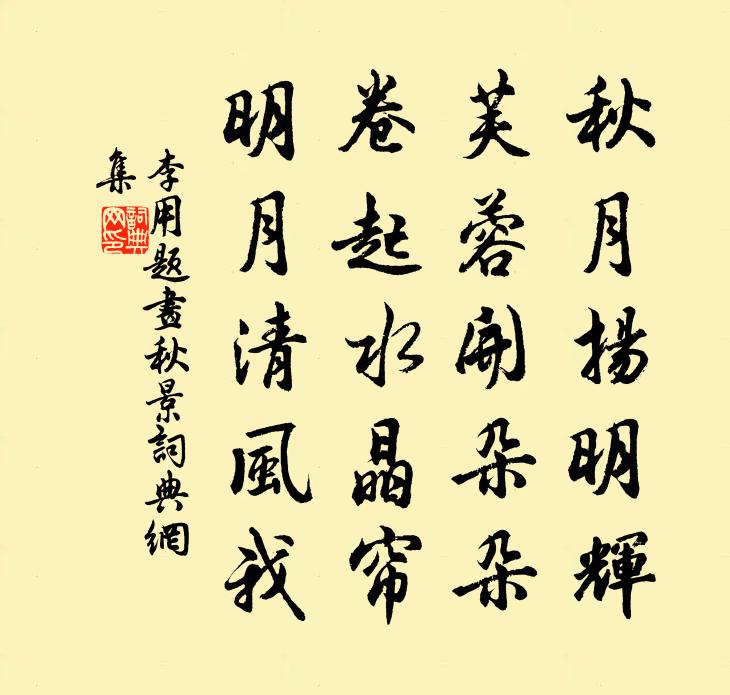 秋月揚明輝
芙蓉開朵朵
卷起水晶帘
明月清風我
李用題畫秋景詞典網
集
詞典
网印